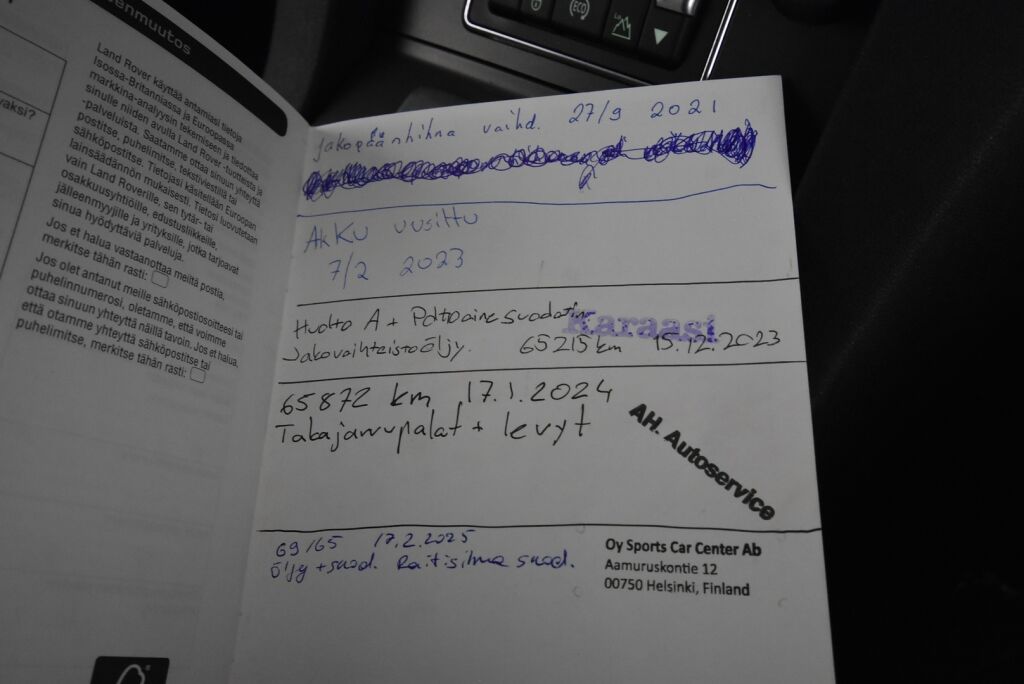 enmuutos
vaksi?
Land Rover käyttää antamiasi tietoja
Isossa-Britanniassa ja Euroopassa
markkina-analyysin tekemiseen ja tiedottaa
sinulle niiden avulla Land Rover -tuotteista ja
-palveluista. Saatamme ottaa sinuun yhteyttä
postitse, puhelimitse, tekstiviestillä tai
sähköpostitse. Tietojasi käsitellään Euroopan
lainsäädännön mukaisesti. Tietosi luovutetaan
vain Land Roverille, sen tytär- tai
osakkuusyhtiöille, edustusliikkeille,
jälleenmyyjille ja yrityksille, jotka tarjoavat
sinua hyödyttäviä palveluja.
Jos et halua vastaanottaa meiltä postia,
merkitse tähän rasti:
Jos olet antanut meille sähköpostiosoitteesi tai
puhelinnumerosi, oletamme, että voimme
ottaa sinuun yhteyttä näillä tavoin. Jos et halua,
että otamme yhteyttä sähköpostitse tai
puhelimitse, merkitse tähän rasti:
ECO
LO
Jakopäänhihna vaihd. 27/9 2021
AKKU uusittu
7/2 2023
Huolto A + Polttoainesuodatin
Karaasi
Jakovaihteistoöljy. 65215 km 15.12.2023
65872 km 17.1.2024
Takajarrupalat + levyt
AH. Autoservice
69165 17.2.2025
Öljy + suod. Raitisilma suod.
Oy Sports Car Center Ab
Aamuruskontie 12
00750 Helsinki, Finland